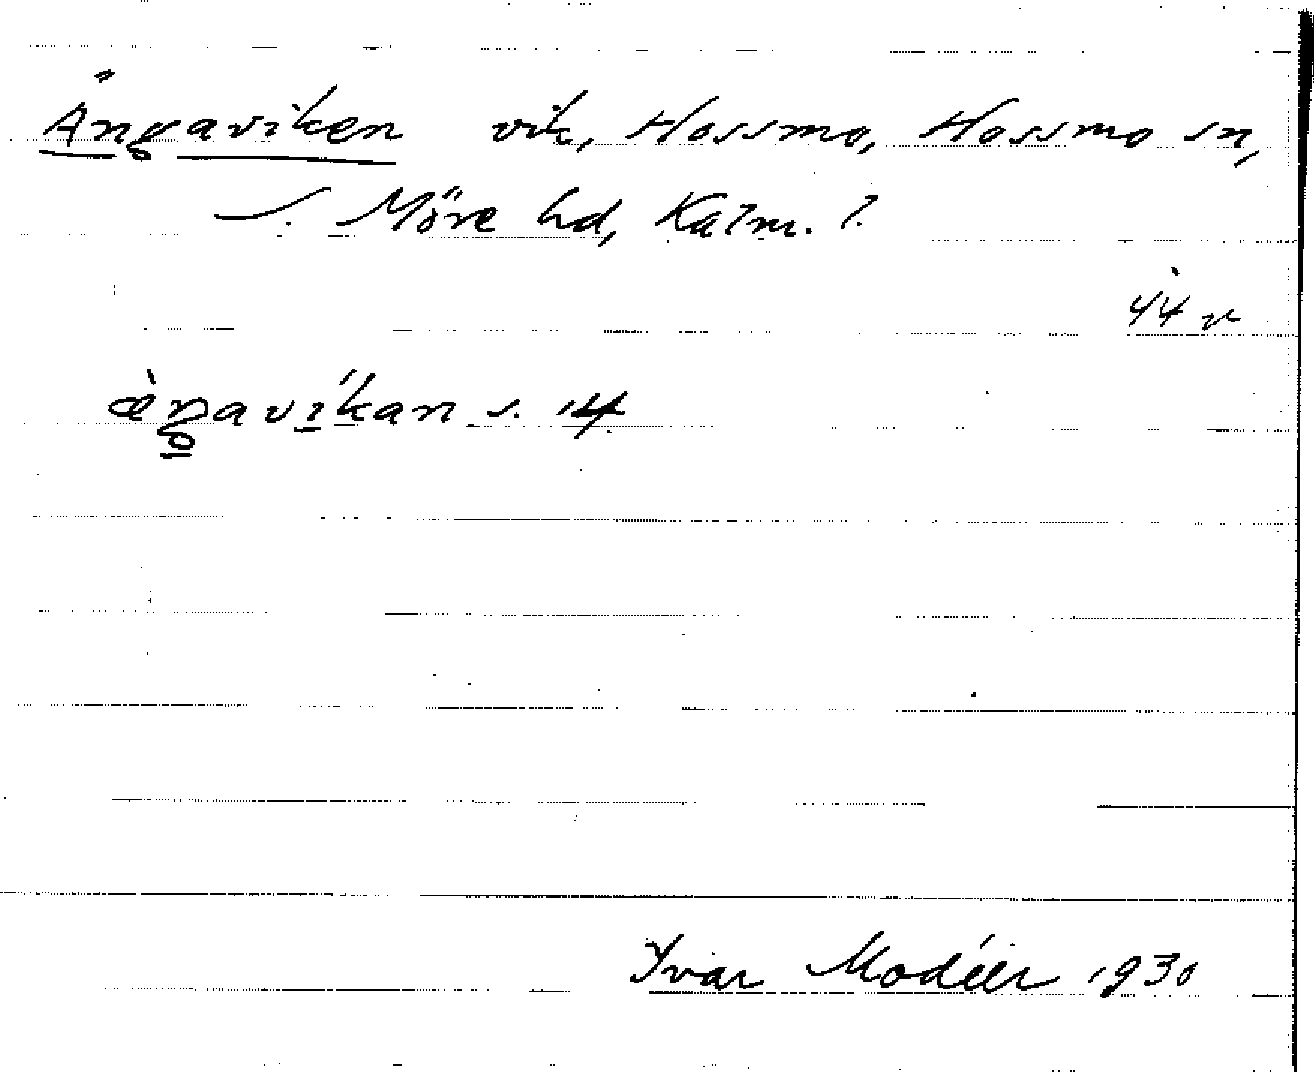 Ängaviken vik, Hossmo, Hossmo sn,
S. Möre hd, Kalm. l.
44 v
æ̀ŋavíkan s. 14
Ivar Modéer 1930